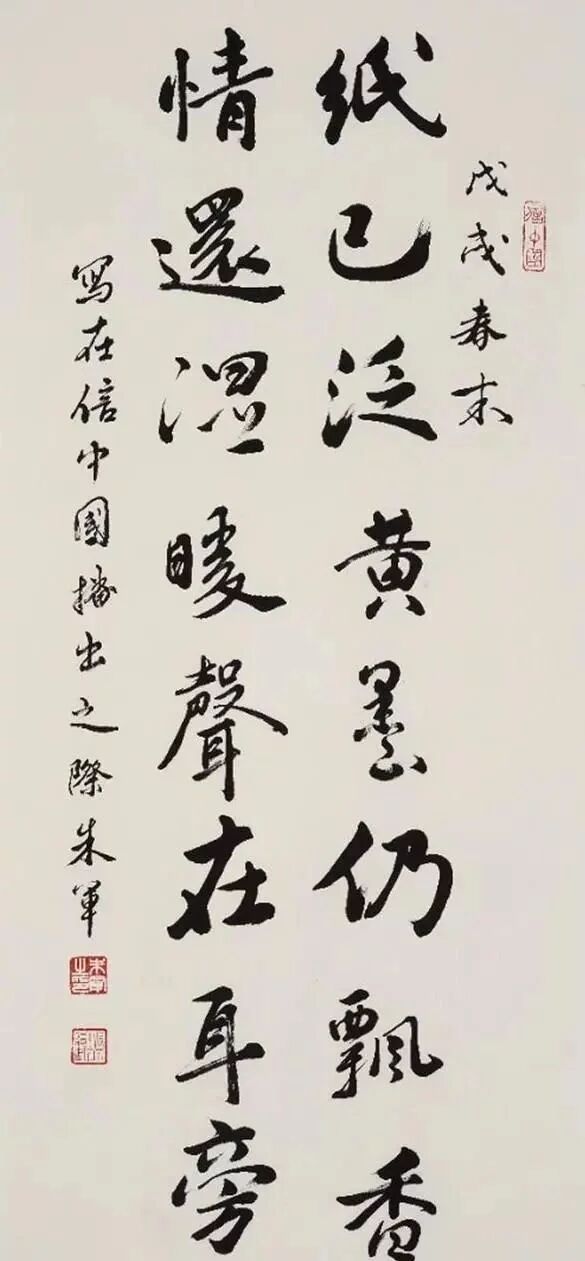 戊戌春末
紙已泛黄墨仍飄香
情還濕暖聲在耳旁
寫在信中國播出之際朱軍